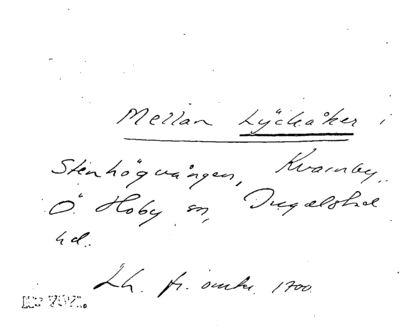 Mellan Lÿckåker i
Stenhögvången, Kvarnby,
Ö. Hoby sn, Ingelstad
hd.
Lh. fr. omkr. 1700.